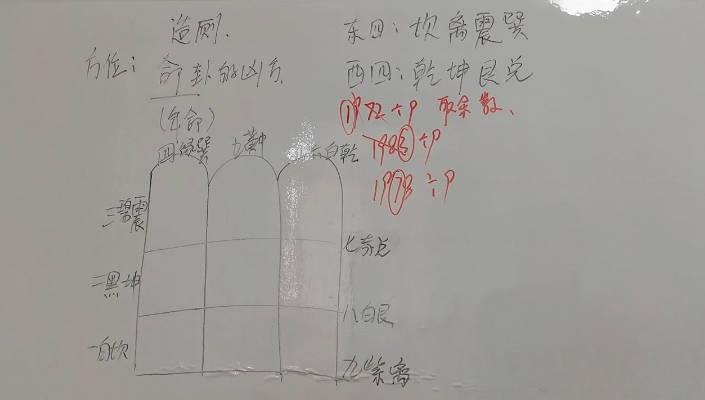 造厕.
方位: 命卦的凶方
(生命)
东四: 坎离震巽
西四: 乾坤艮兑
1972÷9 取余数、
1985÷9
1973÷9
四绿巽
六白乾
三碧震
七赤兑
二黑坤
八白艮
一白坎
九紫离